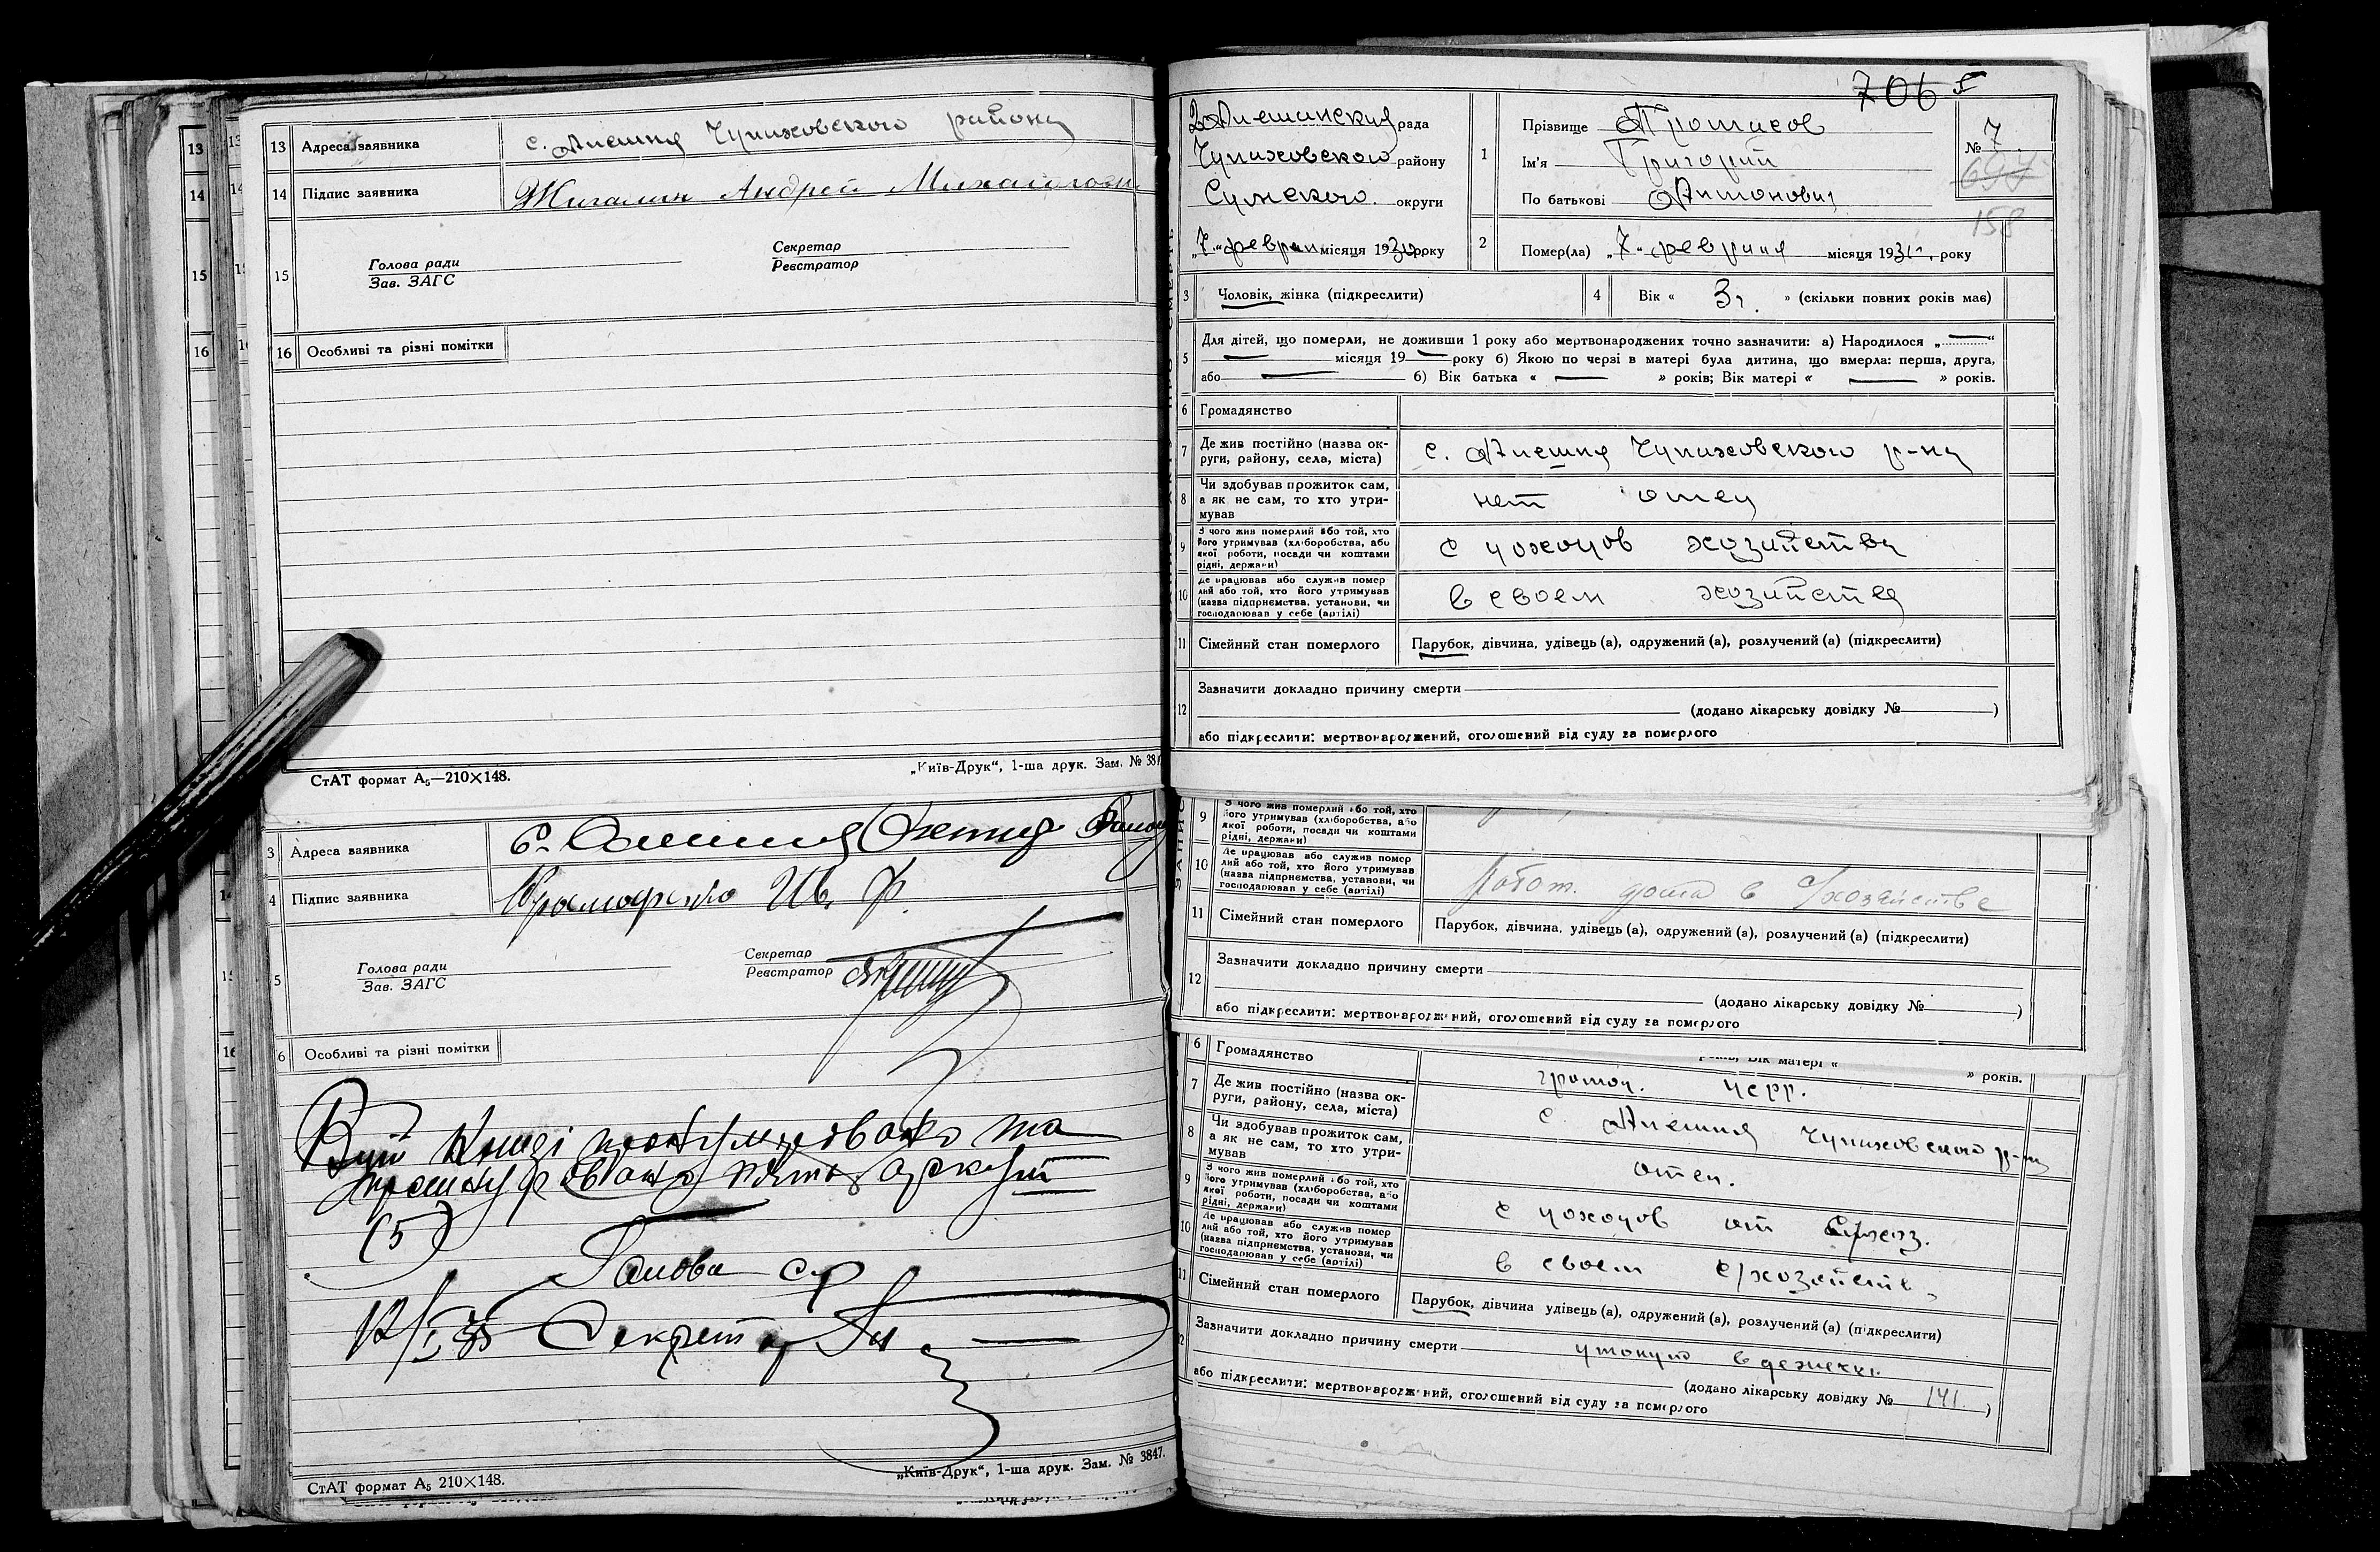 13 Адреса заявника с. Алешня Чупаховского района
14 Підпис заявника Жигалин Андрей
15 Голова ради
Зав. ЗАГС
Секретар
Реєстратор
16 Особливі та різні помітки
СтАТ формат А₅—210×148.
„Київ-Друк“, 1-ша друк. Зам. № 384
3 Адреса заявника
4 Підпис заявника Ив. Ф.
5 Голова ради
Зав. ЗАГС
Секретар
Реєстратор
6 Особливі та різні помітки
Книзі пронумеровано та
прошнуровано аркуш
(5)
Голова с/р
Секретар
СтАТ формат А₅ 210×148.
„Київ-Друк“, 1-ша друк. Зам. № 3847.
706
Алешинская рада
Чупаховского району
Сумского округи
„7“ феврал місяця 1930 року
1 Прізвище Протасов
Ім'я Григорий
По батькові Антонович
№ 7
697
158
2 Помер(ла) „7“ февраля місяця 193 року
3 Чоловік, жінка (підкреслити)
4 Вік « 3 г. » (скільки повних років має)
5 Для дітей, що померли, не доживши 1 року або мертвонароджених точно зазначити: а) Народилося „ — “
— місяця 19 — року б) Якою по черзі в матері була дитина, що вмерла: перша, друга,
або — б) Вік батька « — » років; Вік матері « — » років.
6 Громадянство
7 Де жив постійно (назва округи, району, села, міста) с. Алешня Чупаховского р-на
8 Чи здобував прожиток сам, а як не сам, то хто утримував нет отец
9 З чого жив померлий або той, хто його утримував (хліборобства, або якої роботи, посади чи коштами рідні, держави) с доходов хозяйства
10 Де працював або служив померлий або той, хто його утримував (назва підприємства, установи, чи господарював у себе (артілі) в своем хозяйстве
11 Сімейний стан померлого Парубок, дівчина, удівець (а), одружений (а), розлучений (а) (підкреслити)
12 Зазначити докладно причину смерти
(додано лікарську довідку № )
або підкреслити: мертвонароджений, оголошений від суду за померлого
9 З чого жив померлий або той, хто його утримував (хліборобства, або якої роботи, посади чи коштами рідні, держави)
10 Де працював або служив померлий або той, хто його утримував (назва підприємства, установи, чи господарював у себе (артілі) работ. дома в с/хозяйстве
11 Сімейний стан померлого Парубок, дівчина, удівець (а), одружений (а), розлучений (а) (підкреслити)
12 Зазначити докладно причину смерти
(додано лікарську довідку № )
або підкреслити: мертвонароджений, оголошений від суду за померлого
Вік матері « » років.
6 Громадянство
7 Де жив постійно (назва округи, району, села, міста) с. Алешня Чупаховского р-на
8 Чи здобував прожиток сам, а як не сам, то хто утримував отец.
9 З чого жив померлий або той, хто його утримував (хліборобства, або якої роботи, посади чи коштами рідні, держави) с доходов от с/хоз.
10 Де працював або служив померлий або той, хто його утримував (назва підприємства, установи, чи господарював у себе (артілі) в своем с/хозяйств
11 Сімейний стан померлого Парубок, дівчина удівець (а), одружений (а), розлучений (а) (підкреслити)
Зазначити докладно причину смерти утонул в
(додано лікарську довідку № 141. )
або підкреслити: мертвонароджений, оголошений від суду за померлого